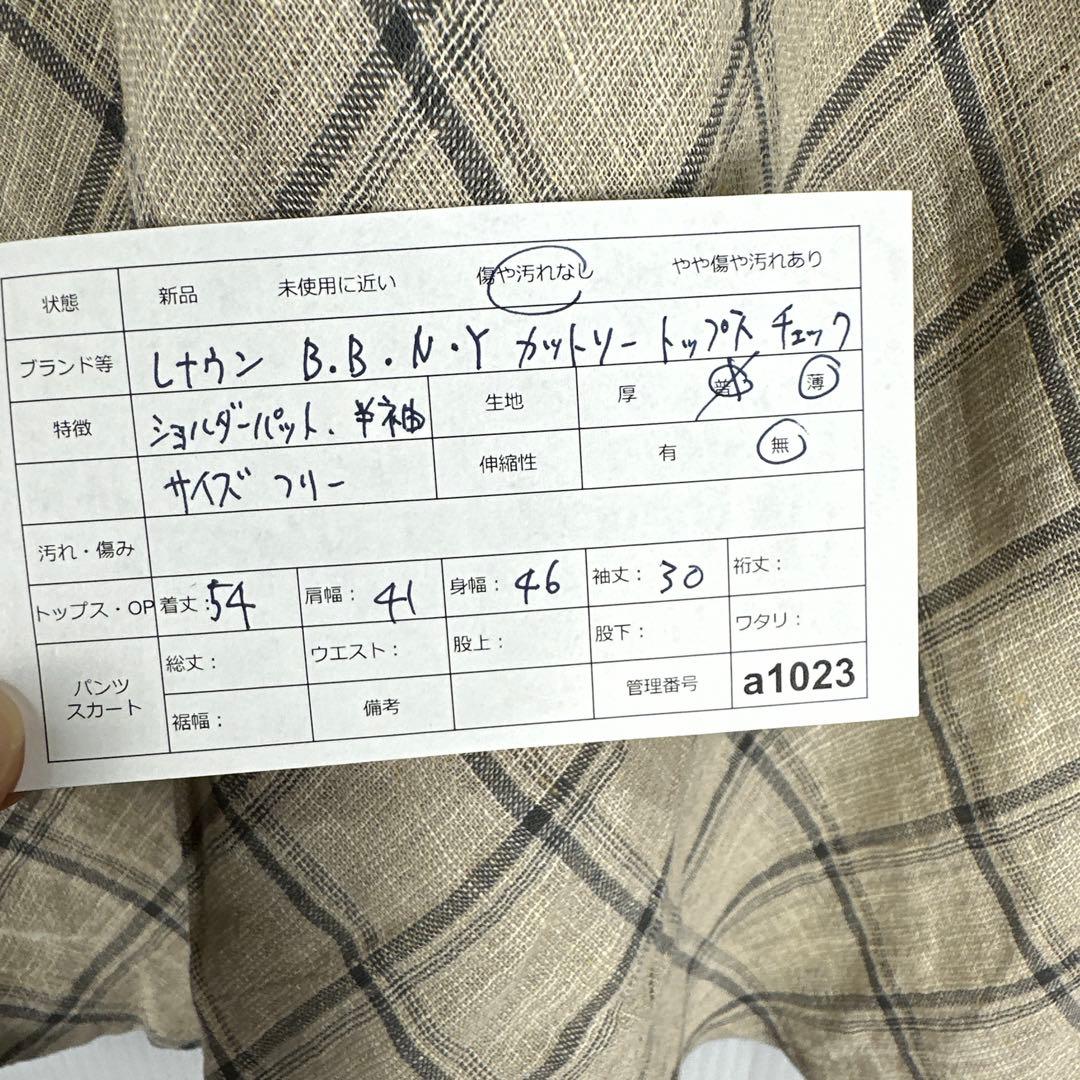 状態 新品 未使用に近い 傷や汚れなし やや傷や汚れあり
ブランド等 レナウン B.B.N.Y カットソー トップス チェック
特徴 ショルダーパット. 半袖 生地 厚 普 薄
サイズ フリー 伸縮性 有 無
汚れ・傷み
トップス・OP 着丈:54 肩幅: 41 身幅: 46 袖丈: 30 裄丈:
パンツ スカート 総丈: ウエスト: 股上: 股下: ワタリ:
裾幅: 備考 管理番号 a1023